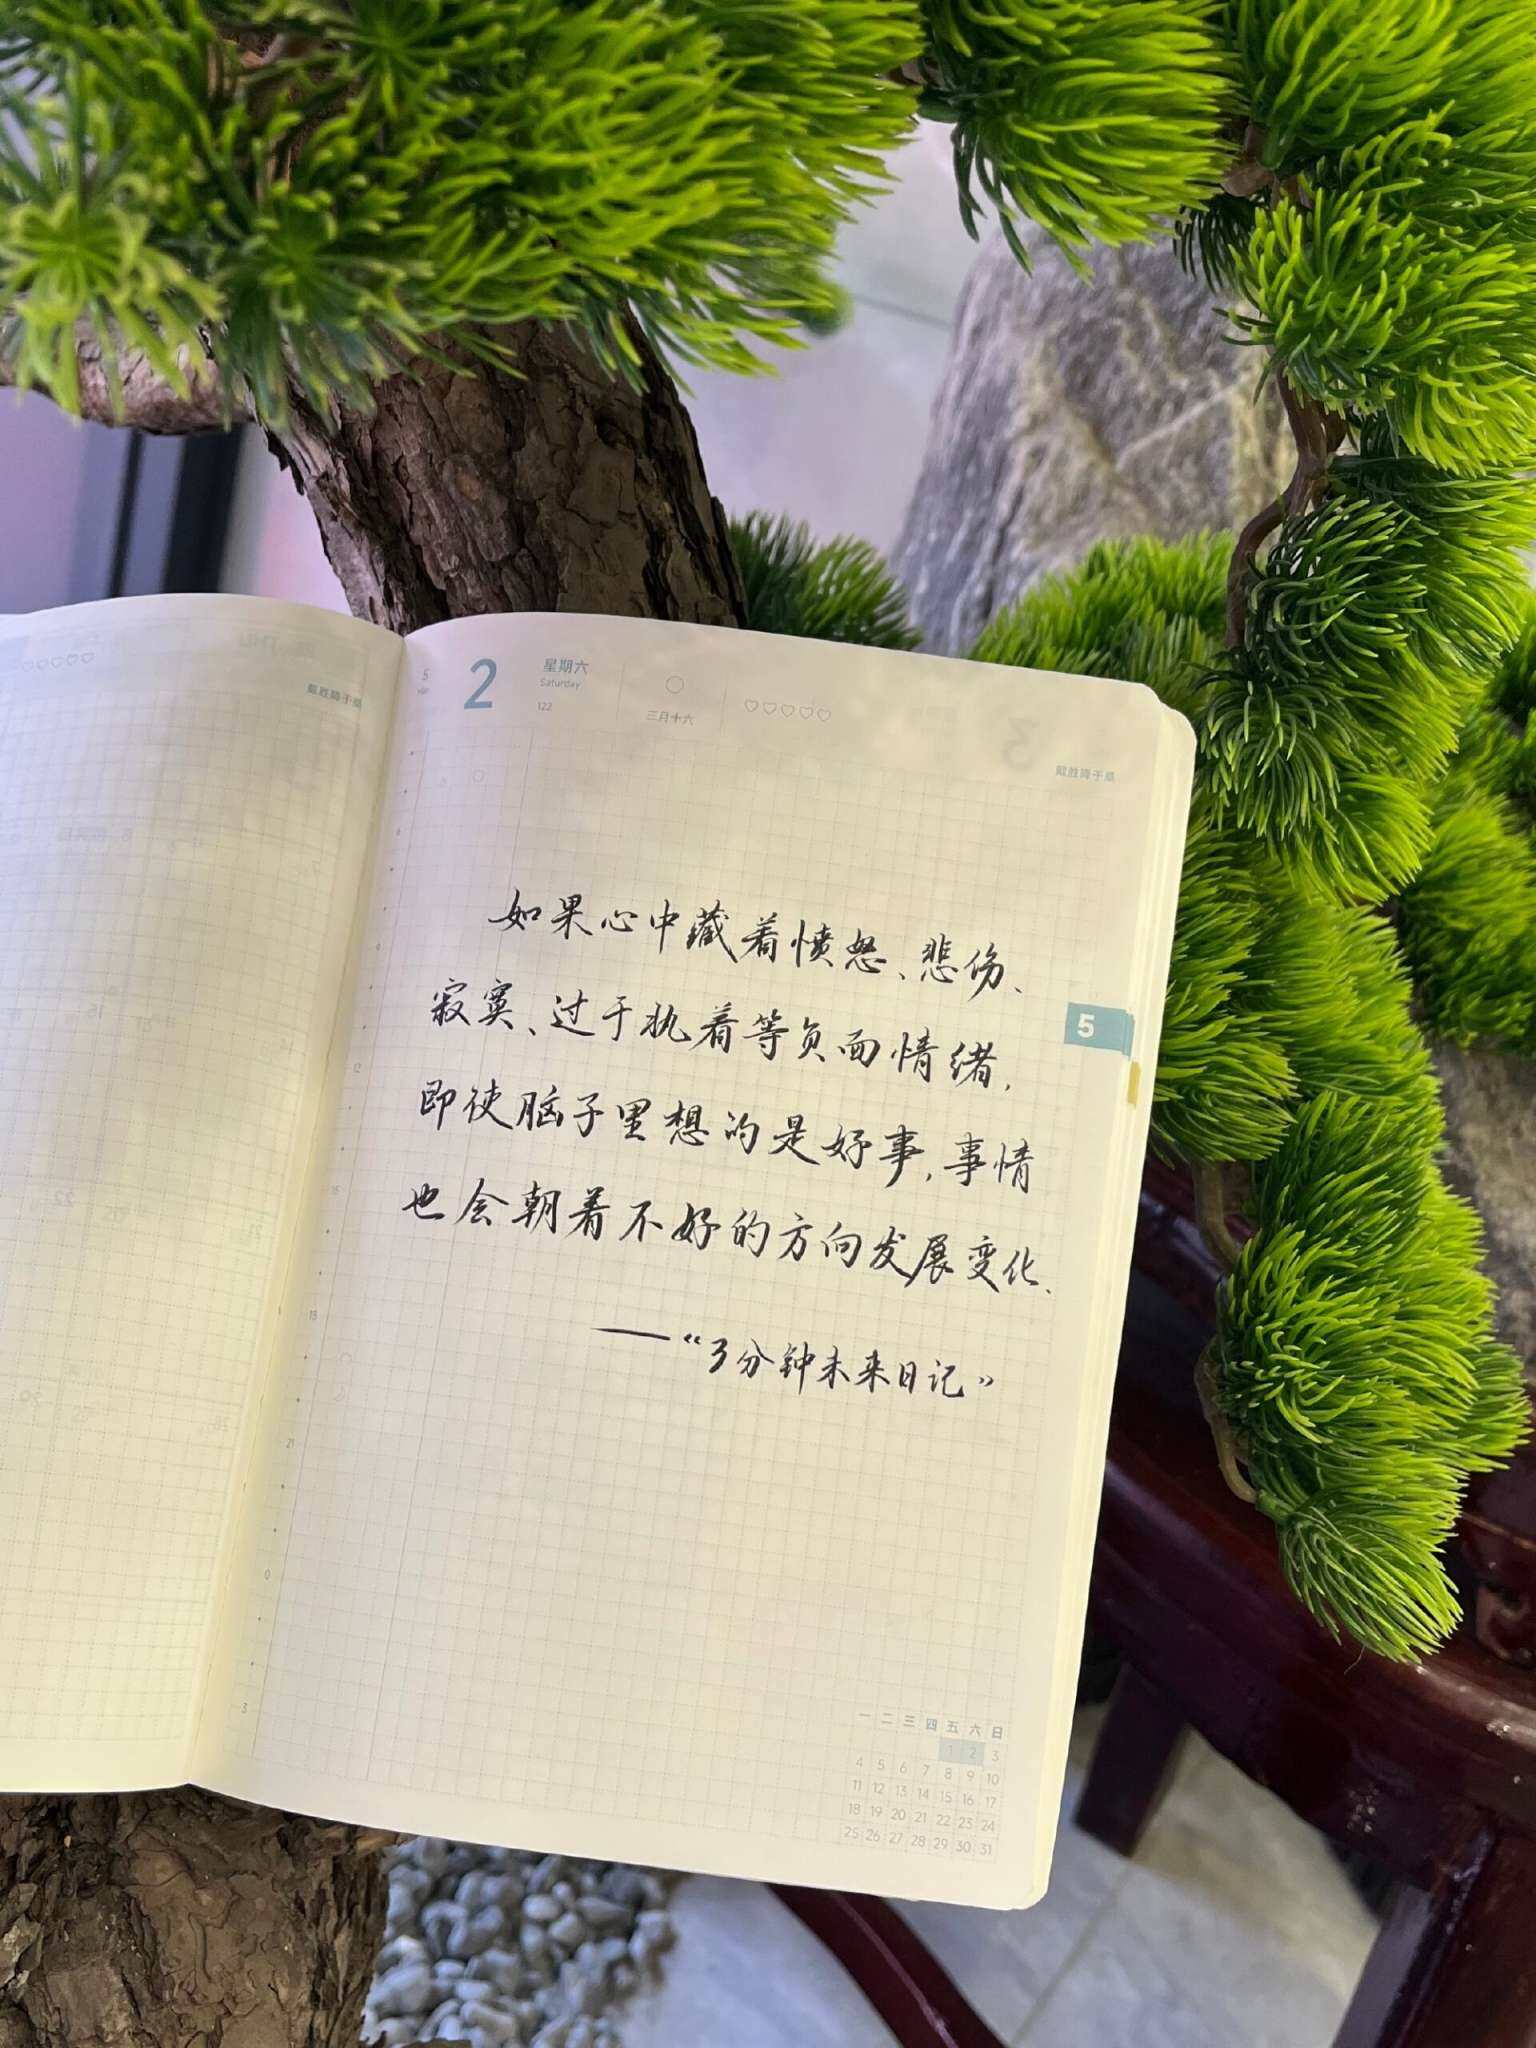 5
2
星期六
Saturday
122
三月十六
戴胜降于桑
戴胜降于桑
如果心中藏着愤怒、悲伤、
寂寞、过于执着等负面情绪，
即使脑子里想的是好事，事情
也会朝着不好的方向发展变化、
——“3分钟未来日记”
5
12
18
21
0
3
一 二 三 四 五 六 日
1 2 3
4 5 6 7 8 9 10
11 12 13 14 15 16 17
18 19 20 21 22 23 24
25 26 27 28 29 30 31